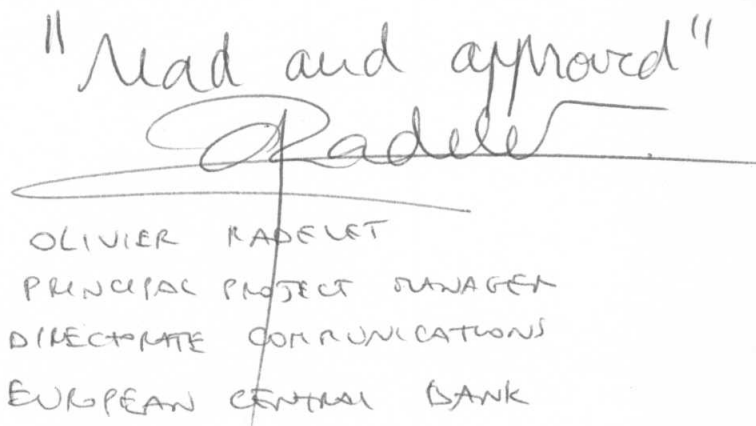 "Read and approved"
ORadelet
OLIVIER RADELET
PRINCIPAL PROJECT MANAGER
DIRECTORATE COMMUNICATIONS
EUROPEAN CENTRAL BANK